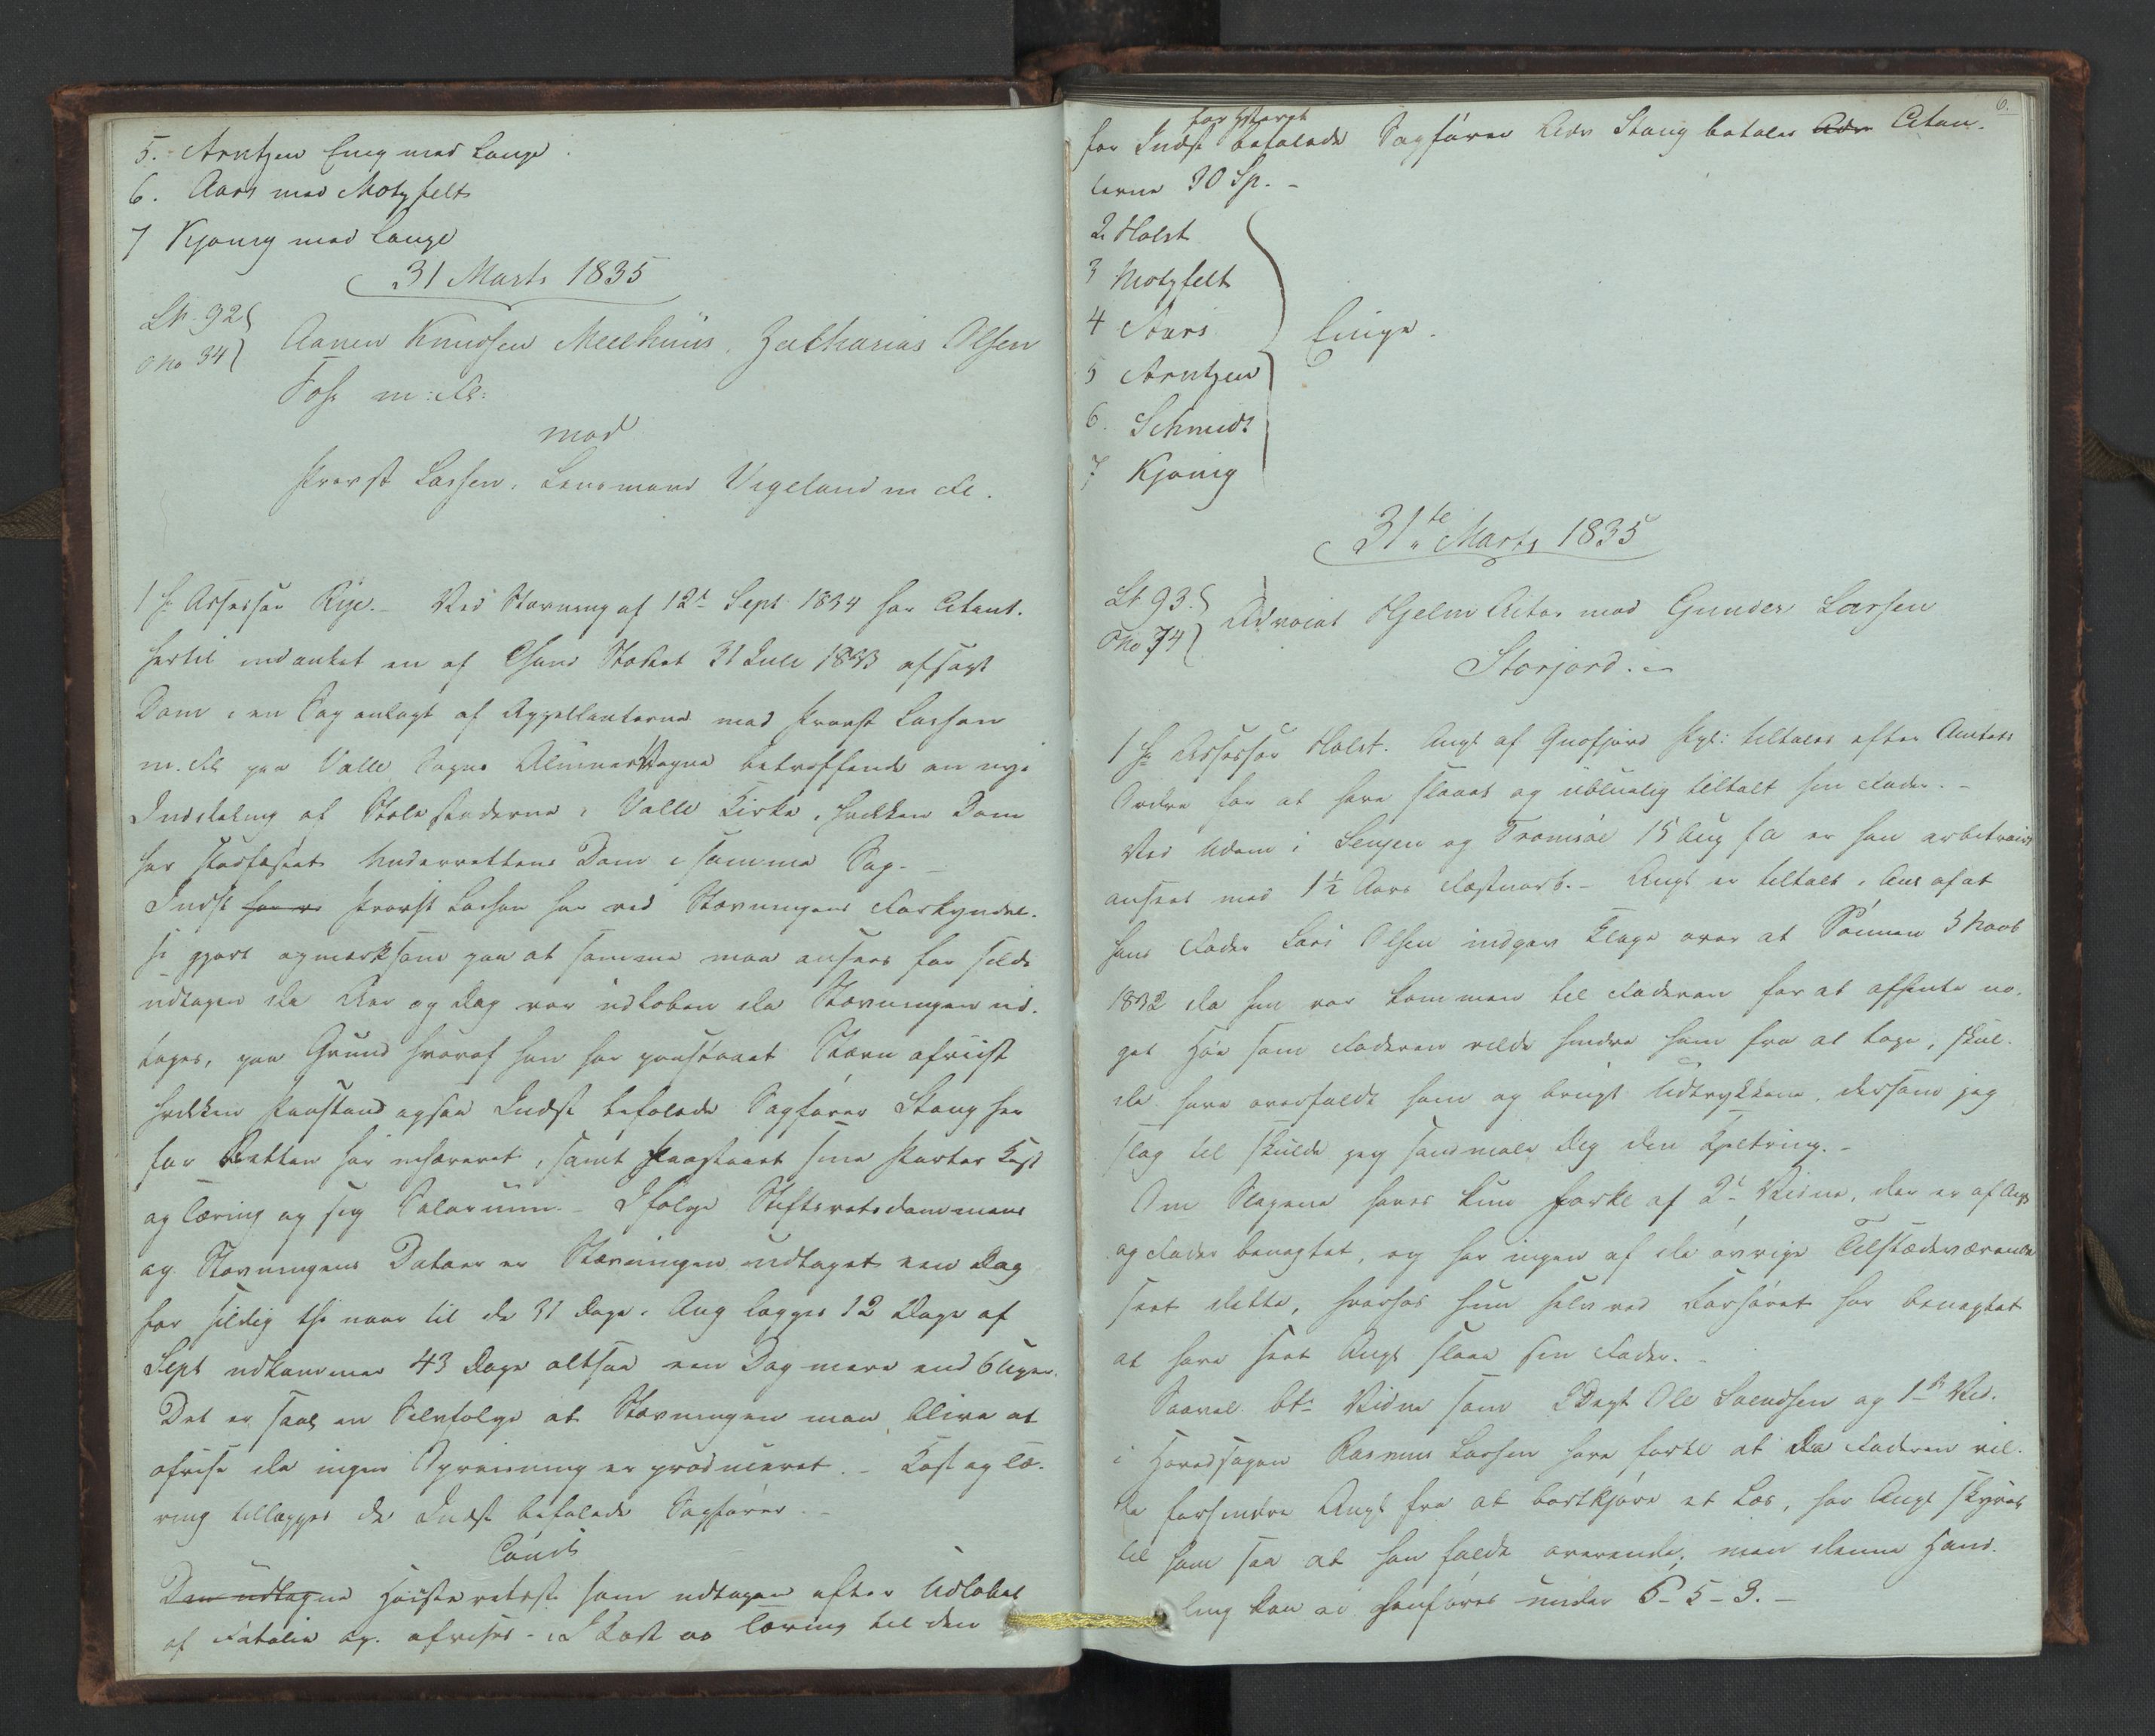 5. Arntzen Enig med Lange.
6. Aars med Motzfelt
7 Kjønig med Lange
31 Marts 1835
Lt. 92
No 34
Aanen Knudsen Meelhuus, Zacharias Olsen
Foss m: Fl:
mod
Provst Lassen, Lensmand Vigeland m Fl.
1 Hr Assessor Rye. - Ved Stævning af 12t Sept 1834 har Citant.
hertil indanket en af Chsand Stiftsret 31 Juli 1833 afsagt
Dom i en Sag anlagt af Appellanterne mod Provst Lassen
m. Fl paa Valle Sogns Almues Vegne betreffende en nye
Inddeling af Stolestaderne i Valle Kirke, hvilken Dom
har stadfæstet Underrettens Dom i samme Sag. -
Indst har ve Provst Lassen har ved Stævningens Forkyndel.
se gjort opmærksom paa at samme maa ansees for silde
udtagen da Aar og Dag var udløben da Stævningen ud.
toges, paa Grund hvoraf han har paastaaet Stævn afviist
hvilken Paastand ogsaa Indst befalede Sagfører Stang her
for Retten har inhæreret, samt paastaaet sine Parter Kost
og Tæring og sig Salarium. - Ifølge Stiftsretsdommens
og Stævningens Datoer er Stævningen udtaget een Dag
for sildig thi naar til de 31 Dage i Aug lægges 12 Dage af
Sept udkommer 43 Dage altsaa een Dag mere end 6 Uger.
Det er saal en Selvfølge at Stævningen maa blive at
afvise da ingen Opreisning er produceret. - Kost og Tæ.
ring tillægges de Indst befalede Sagfører. -
Concl
Den udtagne Høiesteretsst som udtagen efter Udløbet
af Fatalia og. afvises - I Kost og Tæring til den
6.
for Høieret
for Indst befalede Sagfører Adv Stang betaler Adv Citan.
terne 30 Sp. -
2 Holst
3 Motzfelt
4 Aars
Enige.
5 Arntzen
6. Schmidt
7. Kjønig
31te Marts 1835
Lt 93.
No 74
Advocat Hjelm Actor mod Gunder Larsen
Storjord. -
1 Hr Assessor Holst. Angt af Gnofjord Pgl: tiltales efter Amtets
Ordre for at have slaaet og ublueelig tiltalt sin Fader. -
Ved Udom i Senjen og Tromsøe 15 Aug f a er han arbitrairt
anseet med 1½ Aars Fæstnarb. - Angt er tiltalt i Anl af at
hans Fader Lars Olsen indgav Klage over at Sønnen 5 Novb
1832 da han var kommen til Faderen for at afhente no.
get Høe som Faderen vilde hindre ham fra at tage, skul.
de have overfaldt ham og brugt Udtrykkene, dersom jeg
slog til skulde jeg sandmale Dig din Kjeltring. -
Om Slagene haves kun Forkl af 2t Vidne, der er af Angt
og Fader benægtet, og har ingen af de øvrige Tilstædeværende
seet dette, hvorhos hun selv ved Forhøret har benægtet
at have seet Angt slaae sin Fader. -
Saavel 6te Vidne som Degt Ole Svendsen og 1st Vid.
i Hovedsagen Rasmus Larsen have forkl at da Faderen vil.
de forhindre Angt fra at bortkjøre et Læs, har Angt skyvet
til ham saa at han faldt overende, men denne Hand.
ling kan ei henføres under 6-5-3. -